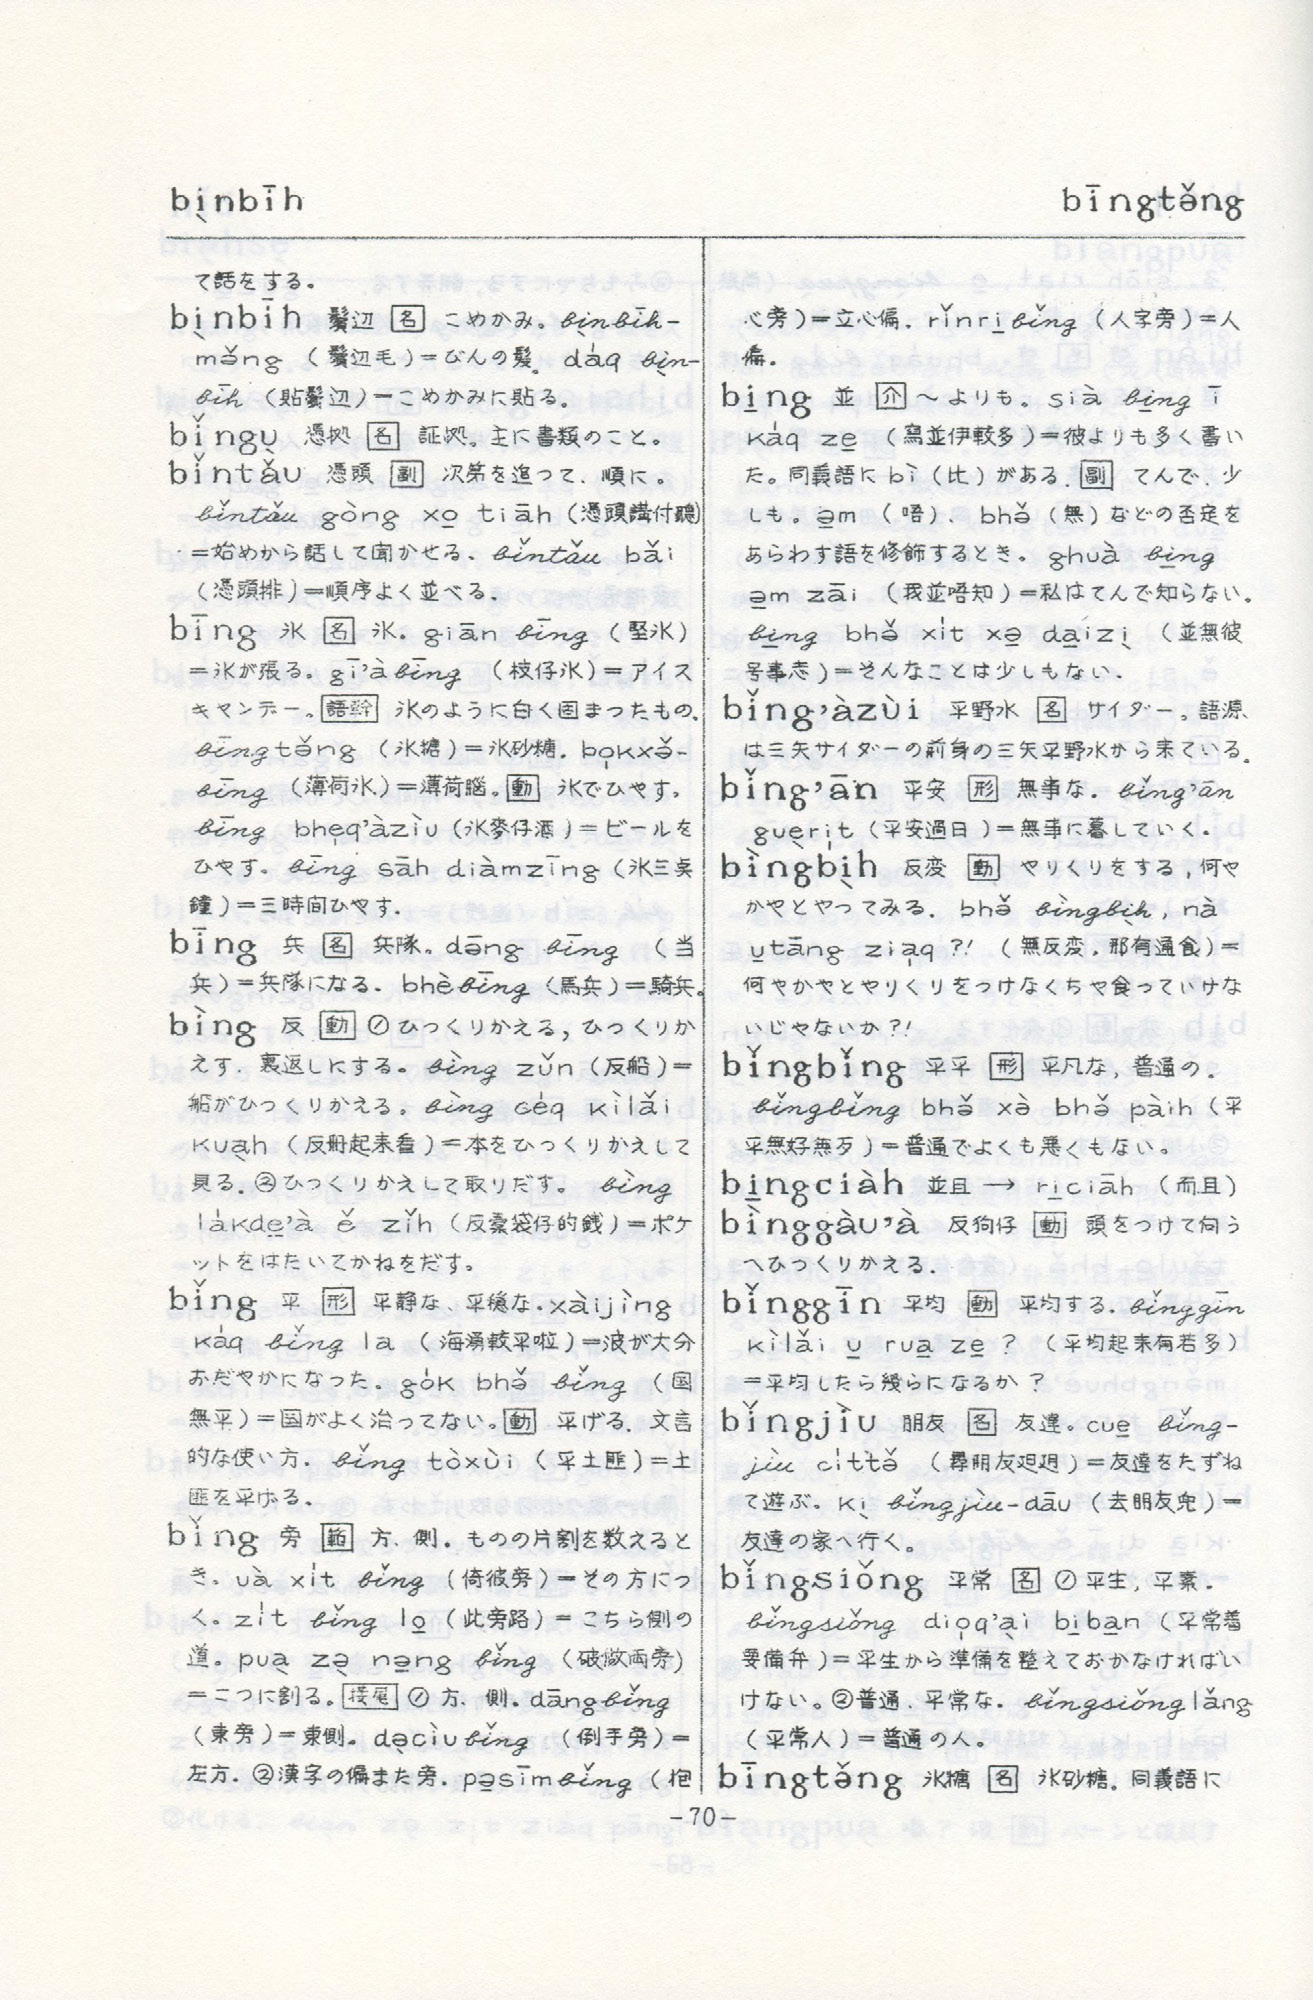 bi̖nbīh
bīngtə̌ng
て話をする。
bi̖nbīh 鬢辺 [名] こめかみ。bi̖nbīh-
mə̌ng (鬢辺毛)=びんの髪。da̍q bi̖n-
bīh (貼鬢辺)=こめかみに貼る。
bǐngu̖ 憑拠 [名] 証拠。主に書類のこと。
bǐntǎu 憑頭 [副] 次第を追って、順に。
bǐntǎu gòng xo̱ tiāh (憑頭講付聽)
=始めから話して聞かせる、bǐntǎu bǎi
(憑頭排)=順序よく並べる。
bīng 氷 [名] 氷。giān bīng (堅氷)
=氷が張る。gī'àbīng (枝仔氷)=アイス
キャンデー。[語幹] 氷のように白く固まったもの。
bīngtə̌ng (氷糖)=氷砂糖. bo̖kxə̌-
bīng (薄荷氷)=薄荷腦。[動] 氷でひやす。
bīng bhe̖q'àziù (氷麥仔酒)=ビールを
ひやす。bīng sāh diàmzīng (氷三点
鐘)=三時間ひやす.
bīng 兵 [名] 兵隊。də̄ng bīng (当
兵)=兵隊になる. bhèbīng (馬兵)=騎兵。
bìng 反 [動] ①ひっくりかえる, ひっくりか
えす. 裏返しにする。bìng zǔn (反船)=
船がひっくりかえる。bìng céq kìlǎi
kua̖h (反冊起来看)=本をひっくりかえして
見る. ②ひっくりかえして取りだす。bìng
la̍kde̱'à ě zǐh (反橐袋仔的銭)=ポケ
ットをはたいてかねをだす。
bǐng 平 [形] 平静な、平穏な. xàijìng
ka̍q bǐng la (海湧較平啦)=波が大分
おだやかになった. go̍k bhə̌ bǐng (国
無平)=国がよく治ってない. [動] 平げる. 文言
的な使い方. bǐng tòxùi (平土匪)=土
匪を平げる.
bǐng 旁 [範] 方、側. ものの片割を数えると
き. uà xi̍t bǐng (倚彼旁)=その方につ
く. zi̍t bǐng lo̱ (此旁路)=こちら側の
道。pua̖ zə̖ nə̱ng bǐng (破做両旁)
=二つに割る。[接尾] ①方、側. dāngbǐng
(東旁)=東側。də̖ciùbǐng (倒手旁)=
左方. ②漢字の偏また旁. pə̱simbǐng (抱
心旁)=立心偏. rǐnri̱bǐng (人字旁)=人
偏.
bi̱ng 並 [介] ～よりも. sià bi̱ng ī
ka̍q ze̱ (寫並伊較多)=彼よりも多く書い
た。同義語に bì (比) がある. [副] てんで、少
しも. ə̱m (唔)、bhə̌ (無) などの否定を
あらわす語を修飾するとき、ghuà bi̱ng
ə̱m zāi (我並唔知)=私はてんで知らない。
bi̱ng bhə̌ xi̍t xə̱ da̱izi̖ (並無彼
号事志)=そんなことは少しもない.
bǐng'àzùi 平野水 [名] サイダー。語源
は三矢サイダーの前身の三矢平野水から来ている。
bǐng'ān 平安 [形] 無事な. bǐng'ān
gue̖ri̍t (平安過日)=無事に暮していく.
bìngbi̖h 反変 [動] やりくりをする, 何や
かやとやってみる. bhə̌ bìngbi̖h, nà
u̱tāng zia̖q?! (無反変, 那有通食)=
何やかやとやりくりをつけなくちゃ食っていけな
いじゃないか?!
bǐngbǐng 平平 [形] 平凡な, 普通の.
bǐngbǐng bhə̌ xə̀ bhə̌ pàih (平
平無好無歹)=普通でよくも悪くもない。
bi̱ngciàh 並且 → ri̱ciāh (而且)
bìnggàu'à 反狗仔 [動] 頭をつけて向う
へひっくりかえる.
bǐnggīn 平均 [動] 平均する. bǐnggīn
kìlǎi u̱ rua̱ ze̱ ? (平均起来有若多)
=平均したら幾らになるか?
bǐngjiù 朋友 [名] 友達。cue̱ bǐng-
jiù cìttə̌ (尋朋友𨑨迌)=友達をたずね
て遊ぶ。ki̖ bǐngjiù-dāu (去朋友兜)=
友達の家へ行く。
bǐngsiǒng 平常 [名] ①平生, 平素.
bǐngsiǒng dio̖q'a̖i bi̱ba̱n (平常着
要備弁)=平生から準備を整えておかなければい
けない。②普通、平常な. bǐngsiǒnglǎng
(平常人)=普通の人。
bīngtə̌ng 氷糖 [名] 氷砂糖. 同義語に
-70-